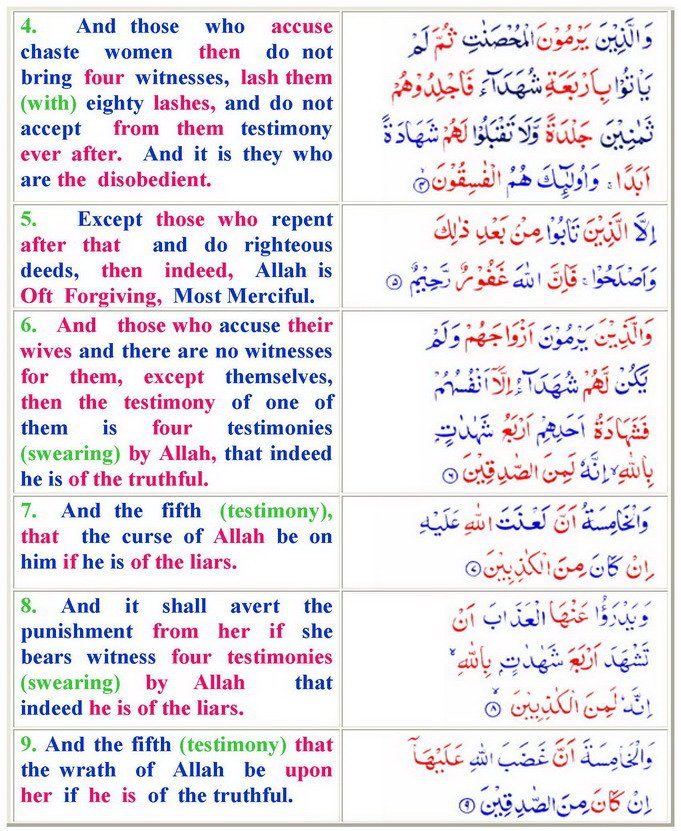 4. And those who accuse
chaste women then do not
bring four witnesses, lash them
(with) eighty lashes, and do not
accept from them testimony
ever after. And it is they who
are the disobedient.
وَالَّذِيْنَ يَرْمُوْنَ الْمُحْصَنٰتِ ثُمَّ لَمْ
يَاْتُوْا بِاَرْبَعَةِ شُهَدَآءَ فَاجْلِدُوْهُمْ
ثَمٰنِيْنَ جَلْدَةً وَّلَا تَقْبَلُوْا لَهُمْ شَهَادَةً
اَبَدًا ۚ وَاُولٰٓئِكَ هُمُ الْفٰسِقُوْنَ ﴿۴﴾
5. Except those who repent
after that and do righteous
deeds, then indeed, Allah is
Oft Forgiving, Most Merciful.
اِلَّا الَّذِيْنَ تَابُوْا مِنْ بَعْدِ ذٰلِكَ
وَاَصْلَحُوْا ۚ فَاِنَّ اللّٰهَ غَفُوْرٌ رَّحِيْمٌ ﴿۵﴾
6. And those who accuse their
wives and there are no witnesses
for them, except themselves,
then the testimony of one of
them is four testimonies
(swearing) by Allah, that indeed
he is of the truthful.
وَالَّذِيْنَ يَرْمُوْنَ اَزْوَاجَهُمْ وَلَمْ
يَكُنْ لَّهُمْ شُهَدَآءُ اِلَّاۤ اَنْفُسُهُمْ
فَشَهَادَةُ اَحَدِهِمْ اَرْبَعُ شَهٰدٰتٍۭ
بِاللّٰهِ ۙ اِنَّهٗ لَمِنَ الصّٰدِقِيْنَ ﴿۶﴾
7. And the fifth (testimony),
that the curse of Allah be on
him if he is of the liars.
وَالْخَامِسَةُ اَنَّ لَعْنَتَ اللّٰهِ عَلَيْهِ
اِنْ كَانَ مِنَ الْكٰذِبِيْنَ ﴿۷﴾
8. And it shall avert the
punishment from her if she
bears witness four testimonies
(swearing) by Allah that
indeed he is of the liars.
وَيَدْرَؤُا عَنْهَا الْعَذَابَ اَنْ
تَشْهَدَ اَرْبَعَ شَهٰدٰتٍۭ بِاللّٰهِ ۙ
اِنَّهٗ لَمِنَ الْكٰذِبِيْنَ ﴿۸﴾
9. And the fifth (testimony) that
the wrath of Allah be upon
her if he is of the truthful.
وَالْخَامِسَةَ اَنَّ غَضَبَ اللّٰهِ عَلَيْهَاۤ
اِنْ كَانَ مِنَ الصّٰدِقِيْنَ ﴿۹﴾